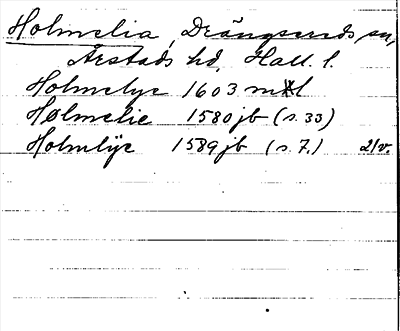 Holmelia, Drängsereds sn,
Årstads hd, Hall. l.
Holmelye 1603 mtl
Hølmelie 1580 jb (s. 33)
Holmlÿe 1589 jb (s. 7.) 2/v.